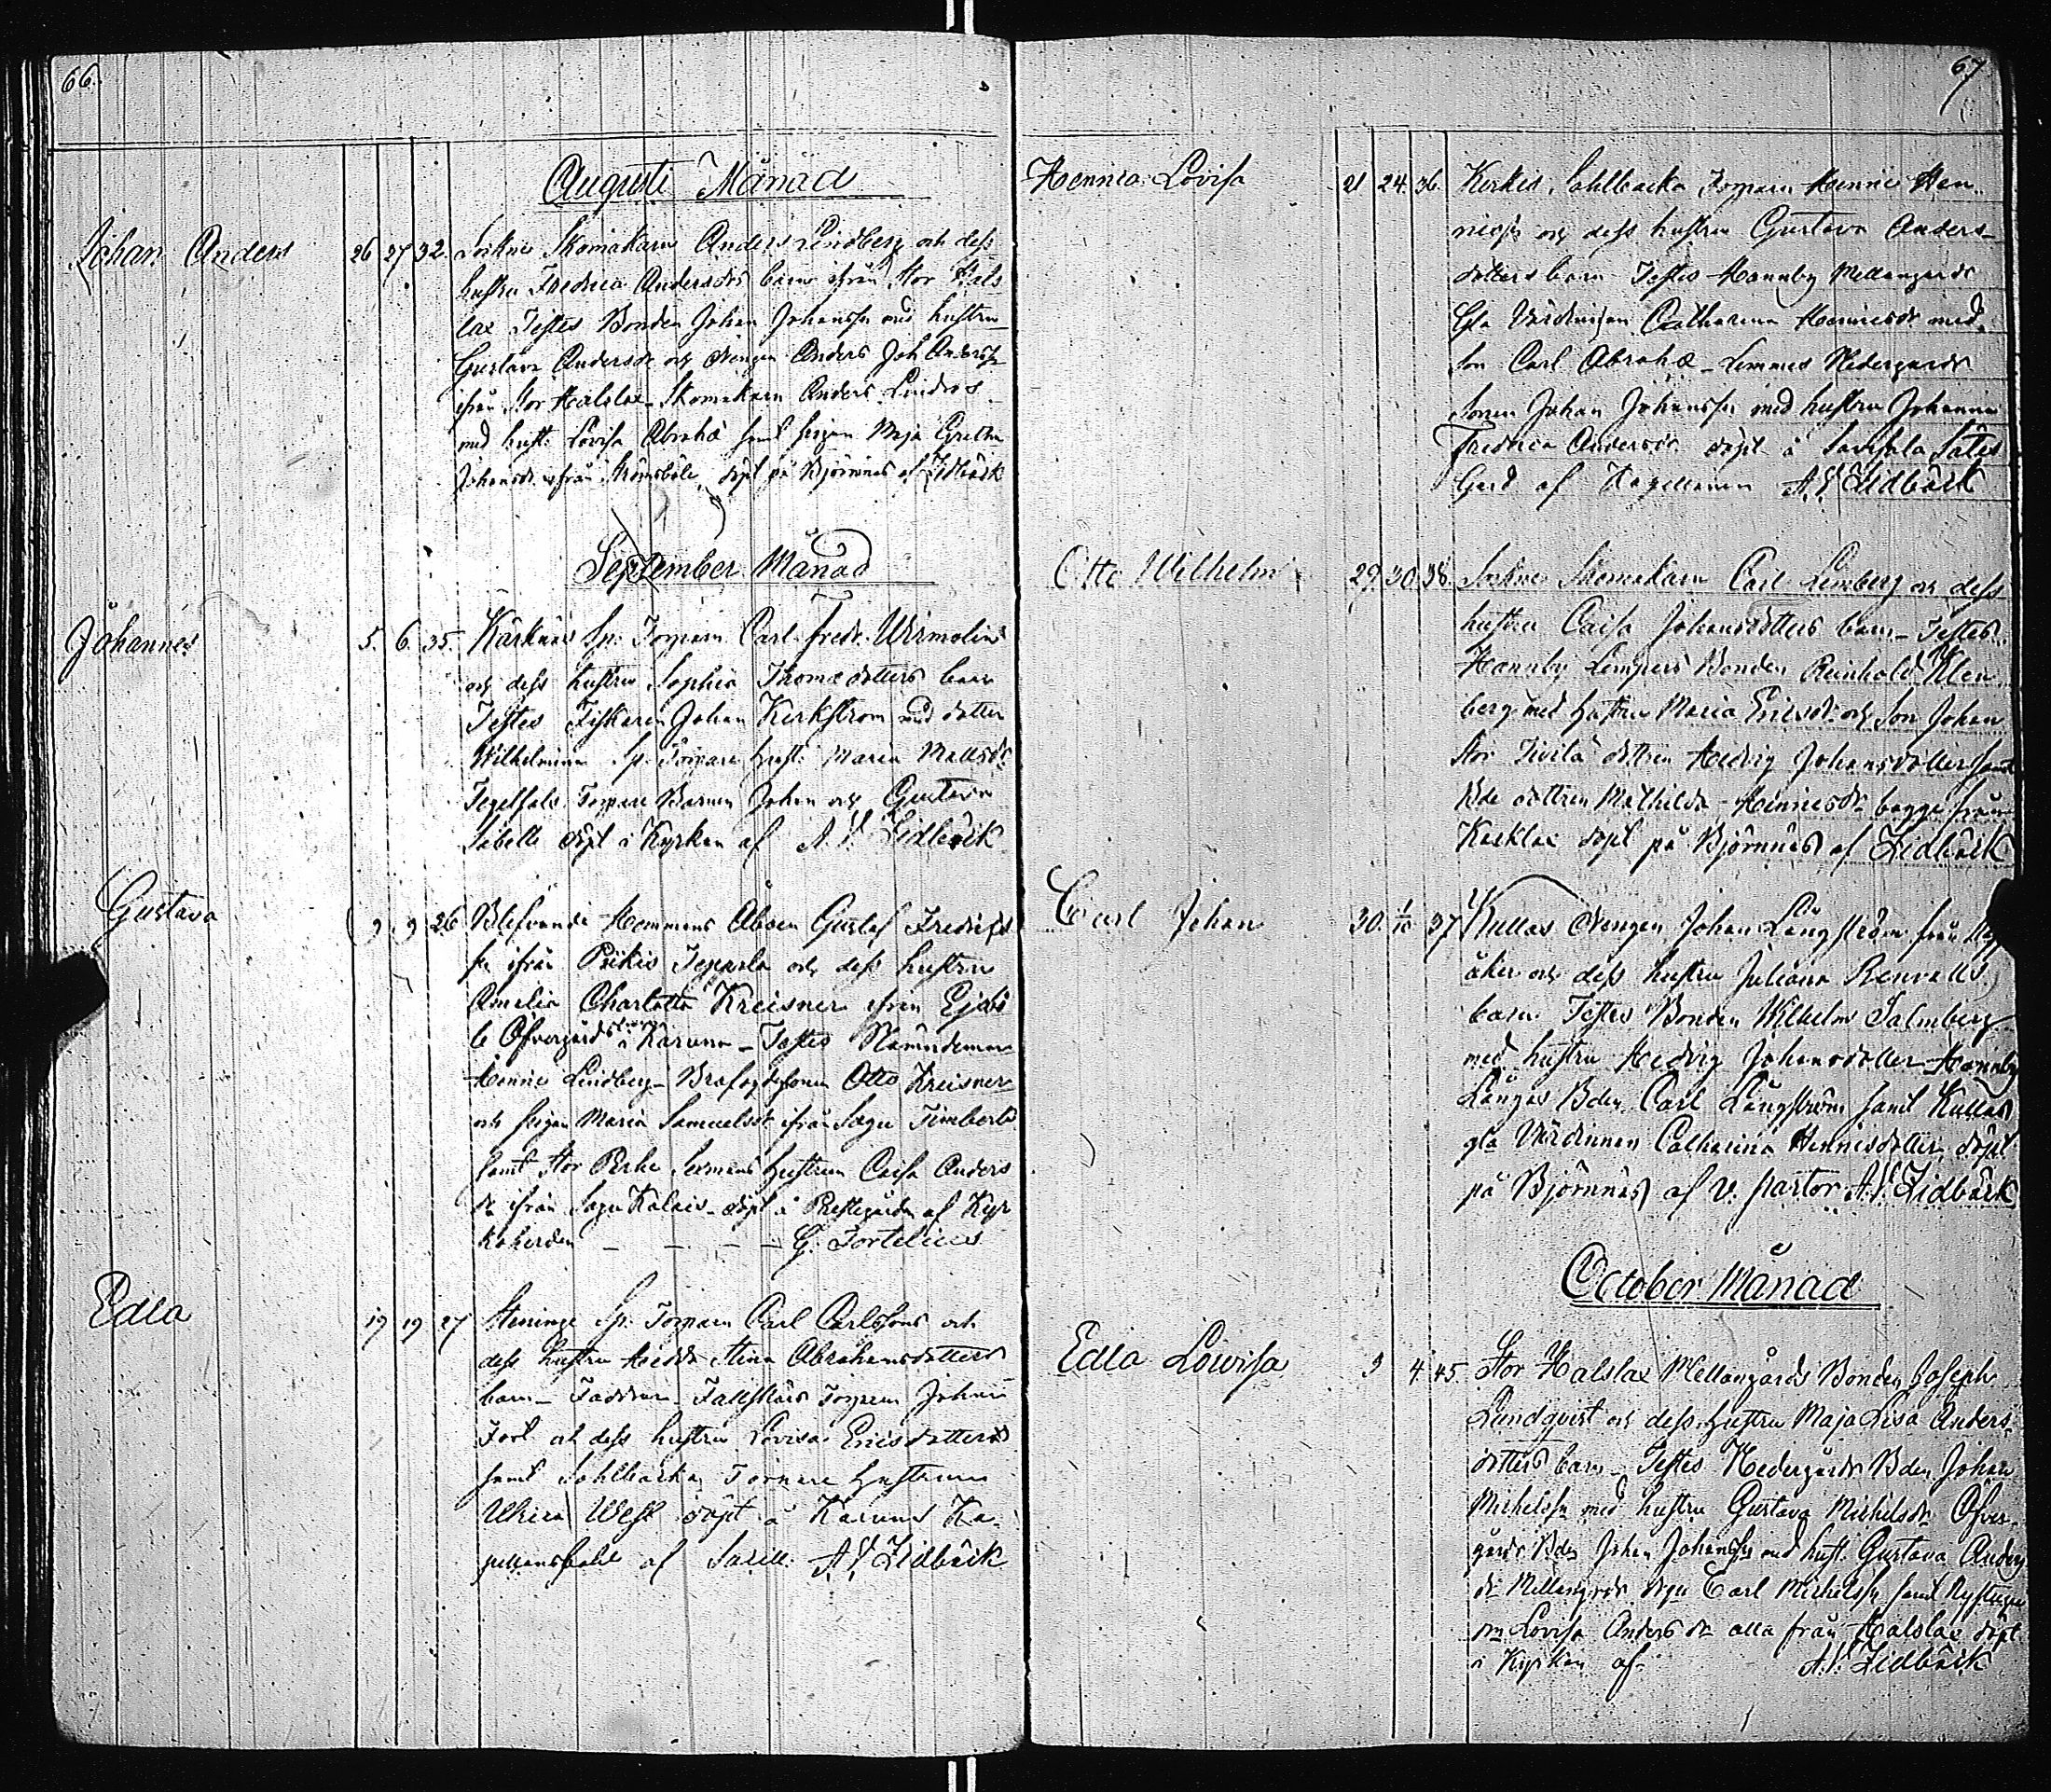 66.
Augusti Månad
Johan Anders 26 27 32. Sockne Skomakarn Anders Lindberg och dess
hustru Fredrica Andersdrs barn ifrån Stor Hals
lax Testes Bonden Johan Johanss. med hustru
Gustava Andersdr och drengen Anders Joh Anderss.
ifrån Stor Halslax Skomakarn Anders Lindros
med hust. Lovisa Abrahd samt pigan Maja Gretha
Johansdr ifrån Strömsböle, döpt på Björnnäs af Lidbäck
September Månad
Johannes 5. 6. 35. Kärknäs Sp. Torparn Carl Fredr. Wirmolins
och dess hustru Sophia Thomædotters barn
Testes Fiskaren Johan Kerkstrom med dotter
Wilhelmina Sp. Torpare hust. Maria Mattsdr
Torpare Barnen Johan och Gustava
Sabelle döpt i Kyrkan af A. V. Lidbäck
Gustava 9 9 26 Blifvande Hemmans Åboen Gustaf Fredrics
sn ifrån Pikis Tepparla och dess hustru
Amelia Charlotta Kreisner ifrån
Öfvergårds barn i Karuna - Testes Nämndeman
Hennic Lindberg - Otto Kreisner
och pigan Maria Samuelsdr ifrån Sagu Timberla
samt Stor Perhe hustrun Caisa Anders
dr ifrån Sagu Kalais - döpt i Prestegården af Kyr
koherden - - - - G. Tortelius
Edla 19 19 27 Steninge Sp. Torparn Carl Carlssons och
dess hustru Hedda Stina Abrahamsdotters
barn - Faddrar Torparen Johan
och dess hustru Lovisa Ericsdotter
samt Sahlbacka Torpare hustrun
Ulrica West döpt i Karuna Ka-
pellansbohl af Sacell. A. V. Lidbäck
67
Hennica Lovisa 21 24. 36. Kerkis Sahlbacka Torparn Hennic Hen-
nicss. och dess hustru Gustava Anders-
dotters barn Testes Hannby Mellangårds
Gla Värdinnan Catharina Hennicsdr med
Son Carl Abrahæ - Lemmes Nedergårds
Sonen Johan Johansson med hustru Johanna
Fredrica Andersdr döpt å Sarfsala Säte
Gård af Kapellanen A. V. Lidbäck
Otto Wilhelm 29. 30. 38. Sockne Skomakarn Carl Limberg och dess
hustru Caisa Johansdotters barn - Testes
Hannby Lempers Bonden Reinhold Klen
berg med hustru Maria Ericsdr och Son Johan
Stor Tivila dottren Hedvig Johansdotter samt
Bde dottren Mathilda Hennicsdr begge från
Kasklax döpt på Björnnäs af Lidbäck
Carl Johan 30. 1/10 37 Kullas drengen Johan Långström från
åker och dess hustru Juliana Renvalls
barn Testes Bonden Wilhelm Salmberg
med hustru Hedvig Johansdotter Hannby
Långas Bden Carl Långström samt Kullas
gla Värdinnan Catharina Hennicsdotter, döpt
på Björnnäs af V. pastor A. V. Lidbäck
October Månad
Edla Lowisa 3 4. 45. Stor Halslax Mellangårds Bonden Joseph
Lundqvist och dess hustru Maja Lisa Anders-
dotters barn Testes Nedergårds Bden Johan
Michelss. med hustru Gustava Michelsdr Öfver-
gårds Bden Johan Johanss. med hust. Gustava Anders
dr Mellangårds drgn Carl Michelss. samt
Lovisa Anders dr alla från Halslax döpt
i Kyrkan af A. V. Lidbäck